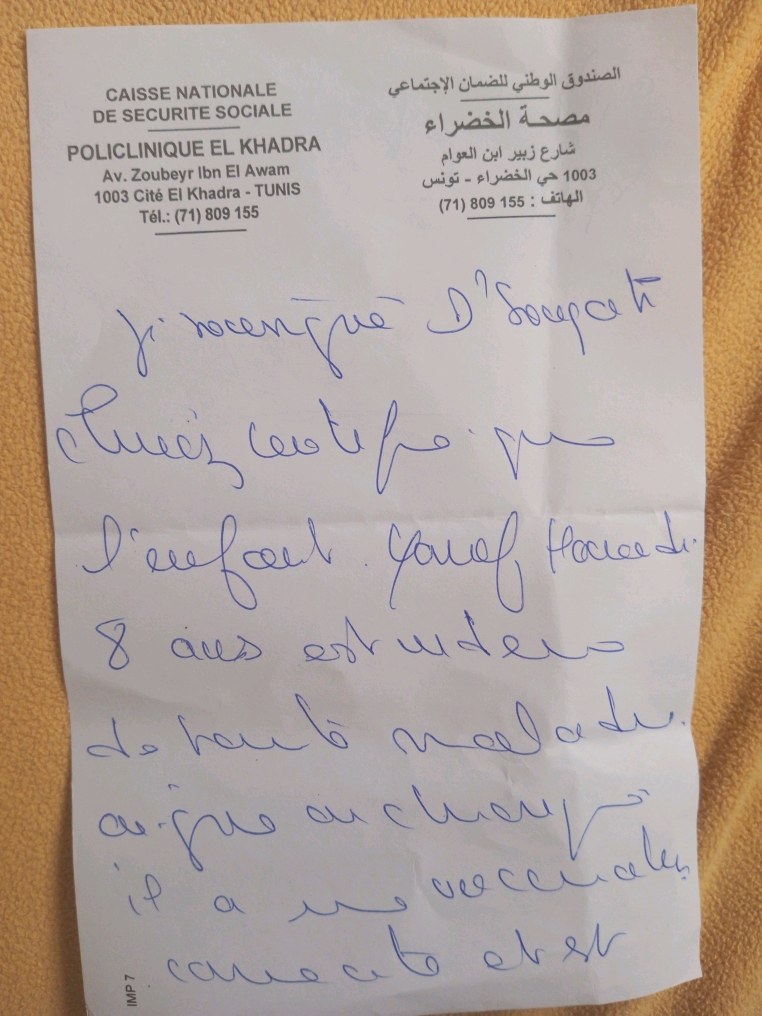 CAISSE NATIONALE
DE SECURITE SOCIALE
POLICLINIQUE EL KHADRA
Av. Zoubeyr Ibn El Awam
1003 Cité El Khadra - TUNIS
Tél.: (71) 809 155
الصندوق الوطني للضمان الإجتماعي
مصحة الخضراء
شارع زبير ابن العوام
1003 حي الخضراء - تونس
الهاتف : 155 809 (71)
Je soussigné Dr
certifie que
l'enfant
8 ans est indemne
de toute maladie
aigue ou chronique
il a une vaccination
correcte et est
IMP 7